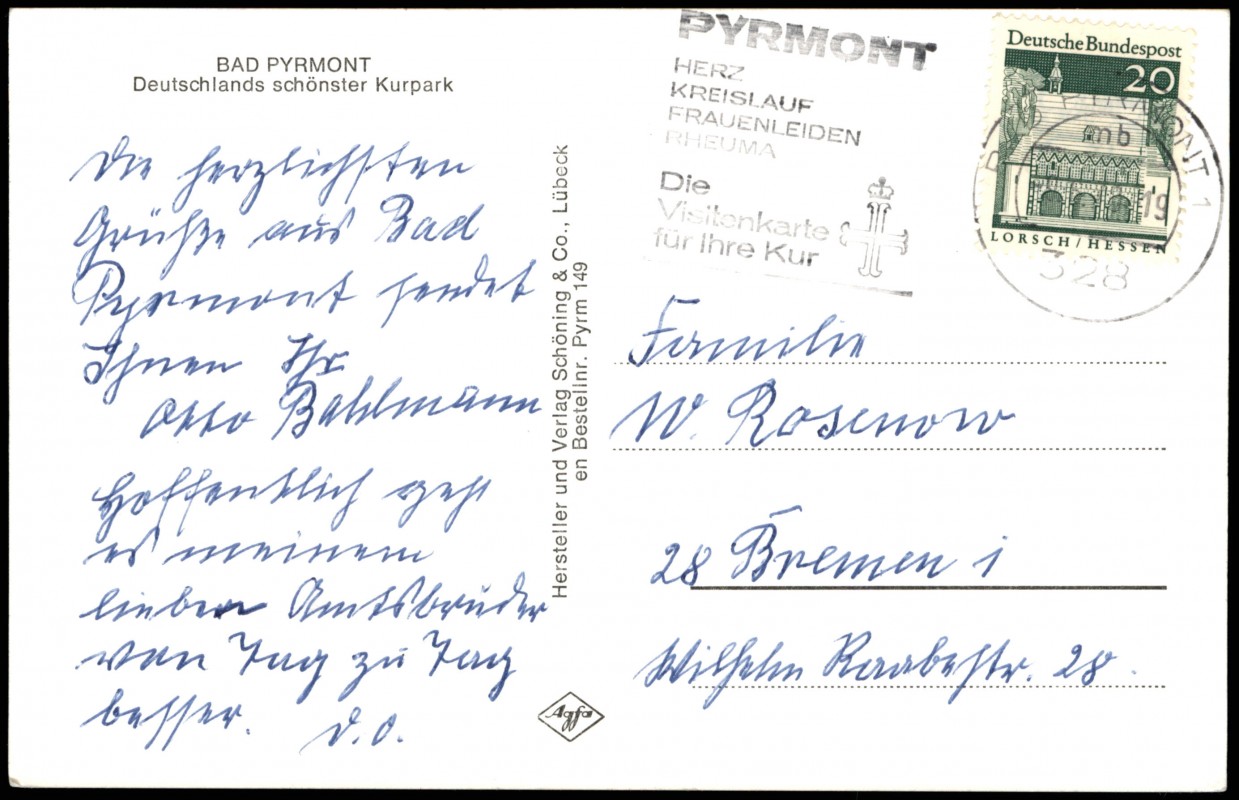 BAD PYRMONT
Deutschlands schönster Kurpark
Die herzlichsten
Grüße aus Bad
Pyrmont sendet
Ihnen Ihr
Otto Bahlmann
Hoffentlich geht
es meinem
lieben Amtsbruder
von Tag zu Tag
besser. D.O.
Hersteller und Verlag Schöning & Co., Lübeck
en Bestellnr. Pyrm 149
Agfa
PYRMONT
HERZ
KREISLAUF
FRAUENLEIDEN
RHEUMA
Die
Visitenkarte
für Ihre Kur
Deutsche Bundespost
20
LORSCH/HESSEN
PYRMONT 1
mb
19
328
Familie
W. Rosenow
28 Bremen 1
Wilhelm Raabestr. 28.